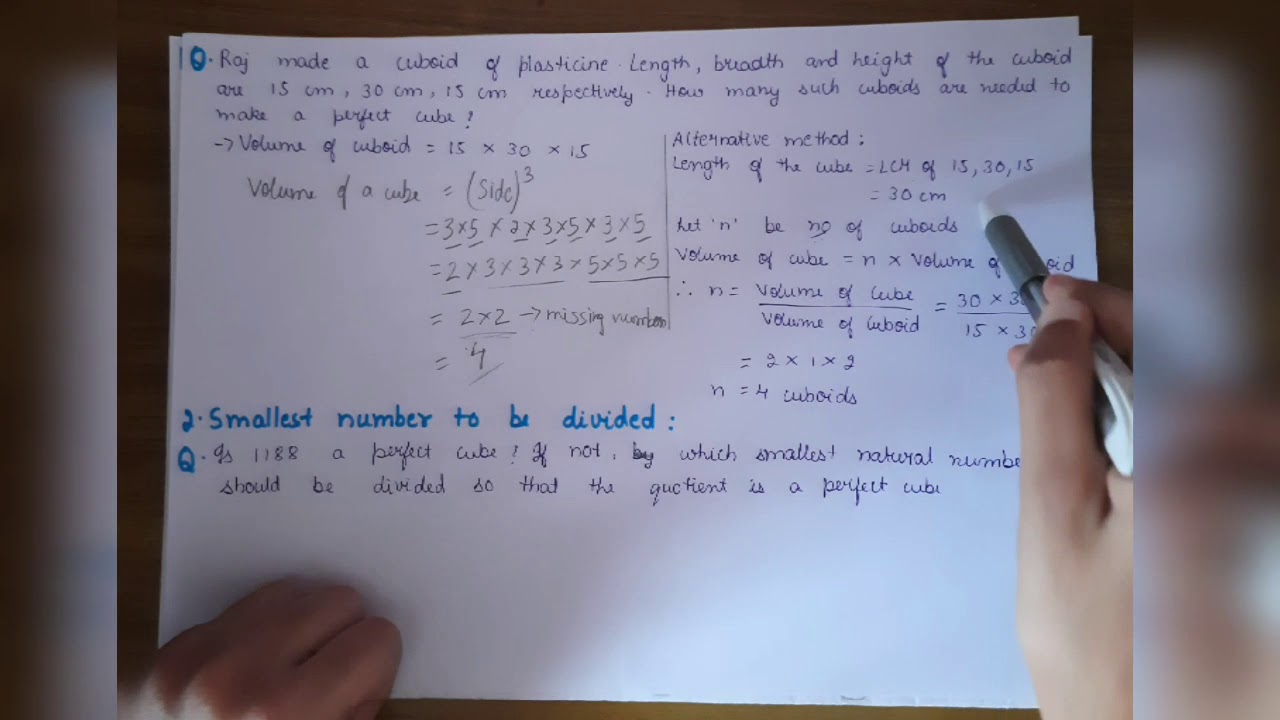 1Q. Raj made a cuboid of plasticine. Length, breadth and height of the cuboid
are 15 cm, 30 cm, 15 cm respectively. How many such cuboids are needed to
make a perfect cube?
-> Volume of cuboid = 15 × 30 × 15
Volume of a cube = (Side)³
= 3×5 × 2×3×5×3×5
= 2×3×3×3×5×5×5
= 2×2 → missing number
= 4
Alternative method:
Length of the cube = LCM of 15, 30, 15
= 30 cm
Let 'n' be no of cuboids
Volume of cube = n × Volume of
∴ n = Volume of Cube / Volume of Cuboid = 30 × / 15 ×
= 2 × 1 × 2
n = 4 cuboids
2. Smallest number to be divided:
Q. Is 1188 a perfect cube? If not, by which smallest natural
should be divided so that the quotient is a perfect cube